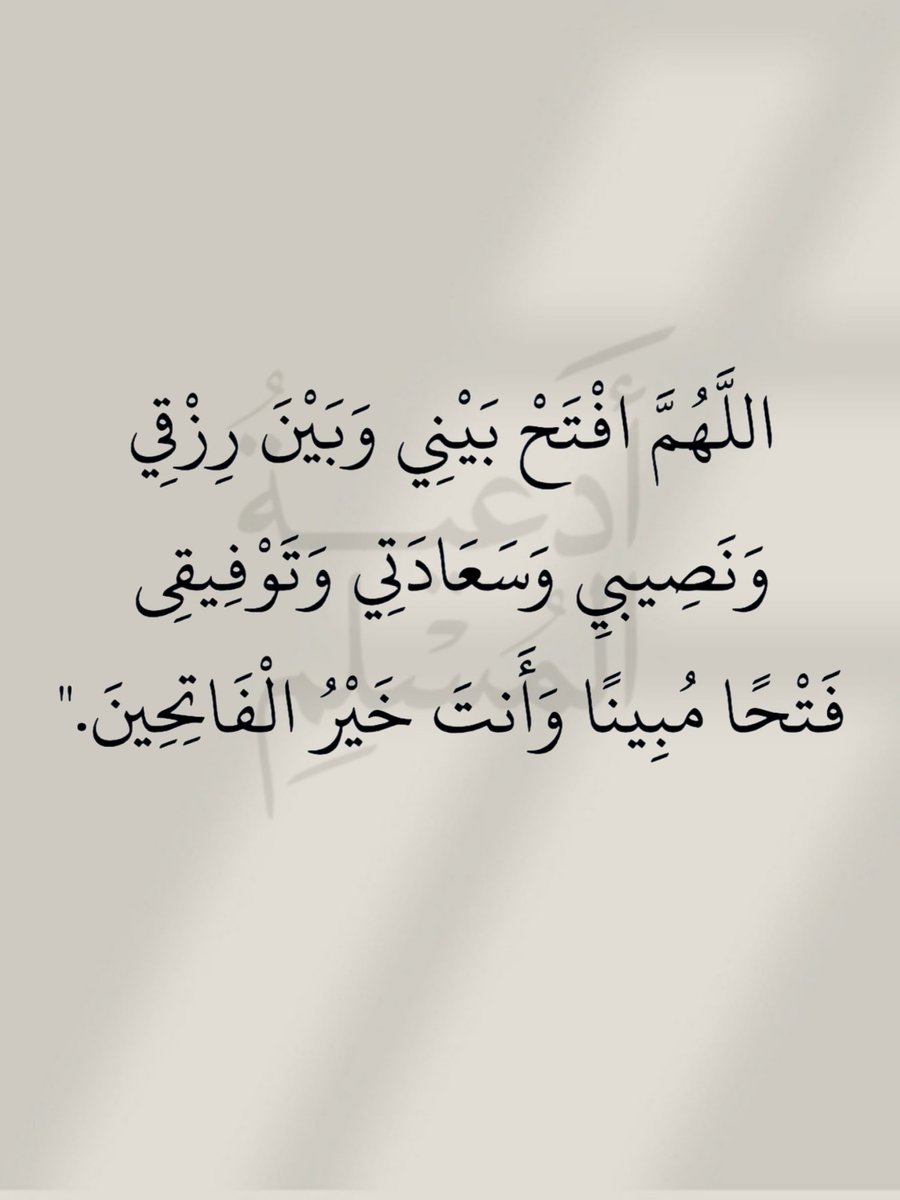 اللَّهُمَّ افْتَحْ بَيْنِي وَبَيْنَ رِزْقِي
وَنَصِيبيِ وَسَعَادَتِي وَتَوْفِيقِى
فَتْحًا مُبِينًا وَأَنتَ خَيْرُ الْفَاتِحِينَ."
أَدعيـــةُ
المُسْلِم